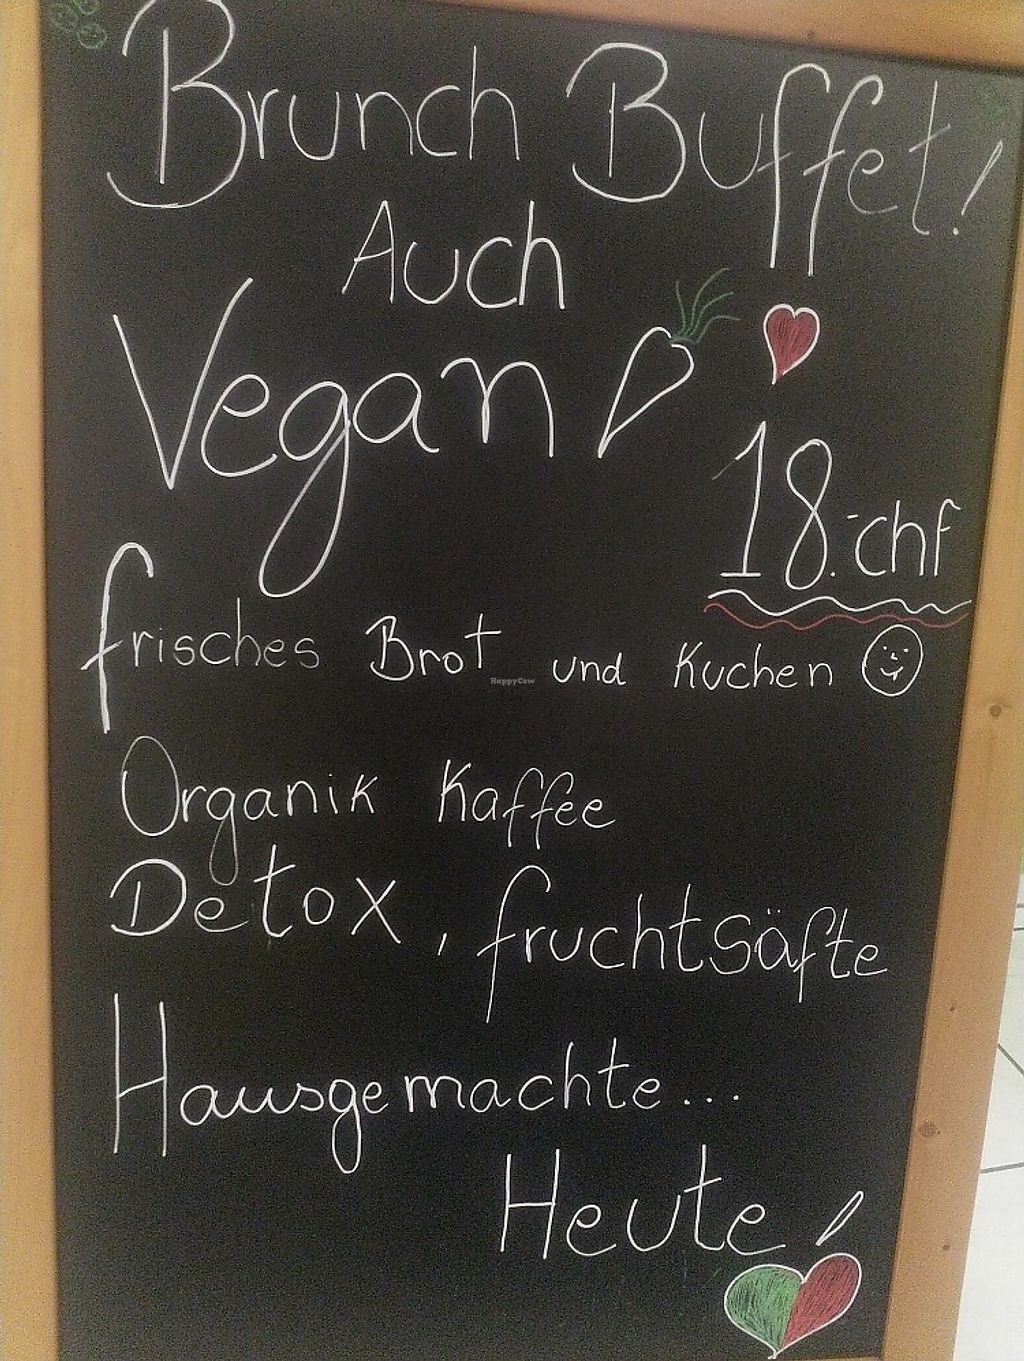 Brunch Buffet!
Auch
Vegan
18.-chf
frisches Brot und Kuchen
HappyCow
Organik Kaffee
Detox, fruchtsäfte
Hausgemachte...
Heute!